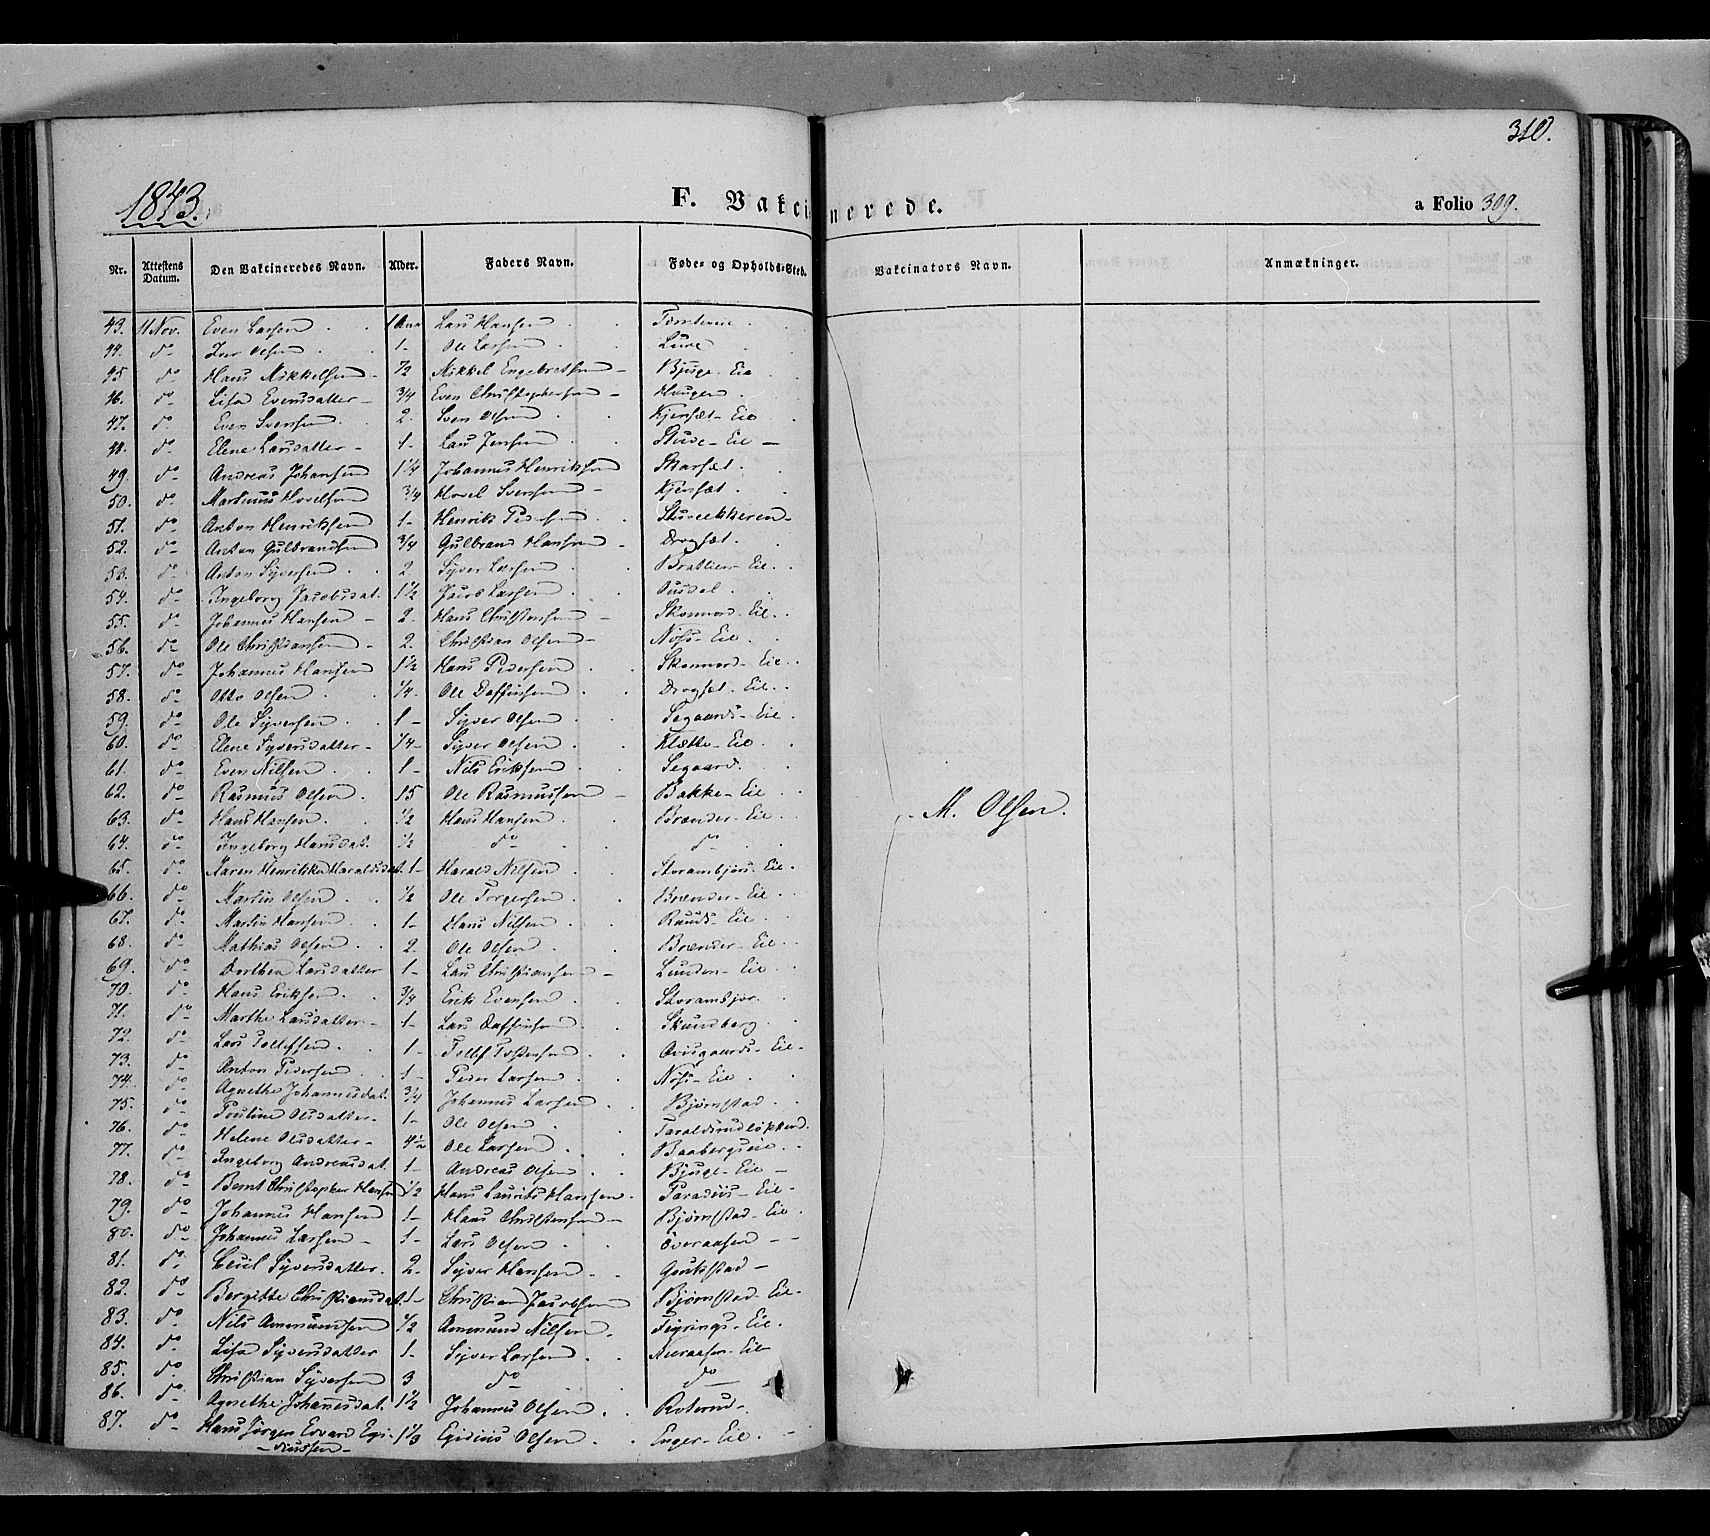 310.
1843.
F. Vakcinerede.
a Folio 309.
Nr. Attestens Datum. Den Vakcineredes Navn. Alder. Faders Navn. Føde- og Opholds-Sted. Vakcinators Navn. Anmækninger.
43. 11 Nov. Even Larsen 1 Aar Lars Hansen
44. do Iver Olsen 1 Ole Larsen Lure
45 do Hans Nikkelsen ½ Nikkel Engebretsen Bjuge-Eie
46. do Lisa Evensdatter ¾ Even Christophersen Haugen
47. do Even Svensen 2. Sven Olsen Kjensæt-Eie
48. do Elene Larsdatter 1 Lars Jensen Stuve-Eie
49. do Andreas Johansen 1¼ Johannes Henriksen Skarsæt.
50. do Martinus Hovelsen ¾ Hovel Svensen Kjensæt.
51. do Anton Henriksen 1 Henrik Pedersen
52. do Anton Gulbrandsen ¾ Gulbrand Hansen Drogsæt.
53. do Anton Syversen 2 Syver Larsen Bratlien-Eie.
54. do Ingeborg Jacobsdat. 1½ Jacob Larsen
55. do Johannes Hansen 2. Hans Christensen Skonnord-Eie.
56. do Ole Christiansen 2. Christian Olsen Nøss-Eie
57. do Johannes Hansen 1½ Hans Pedersen Skonnord-Eie.
58. do Otto Olsen ¼. Ole Daffinsen Drogsæt-Eie.
59. do Ole Syversen 1 Syver Olsen Segaards-Eie.
60. do Elene Syversdatter ¼ Syver Olsen Klætte-Eie
61. do Even Nilsen 1 Nils Eriksen Segaard.
62. do Rasmus Olsen 15 Ole Rasmussen Bakke-Eie
63. do Hans Hansen ½ Hans Hansen Brænder-Eie M. Olsen.
64. do Ingeborg Hansdat. ½ do do
65. do Karen Henrikke Haraldsdat. 1 Harald Nilsen Storambjør-Eie.
66. do Martin Olsen ½ Ole Torgersen Brænder-Eie
67. do Martin Hansen 1 Hans Nilsen Ruuds-Eie
68. do Mathias Olsen 2 Ole Olsen Brænder-Eie
69. do Dorthea Larsdatter 1 Lars Christiansen Lunden-Eie
70. do Hans Eriksen ¾ Erik Evensen Storambjør.
71. do Marthe Larsdatter 1 Lars Daffinsen Skundberg
72. do Lars Tollefsen 1 Tollef Tostensen Ovisgaards-Eie
73. do Anton Pedersen 1 Peder Larsen Nøss-Eie
74. do Agnethe Johannesdat. ¾ Johannes Larsen Bjørnstad
75. do Pouline Olsdatter 1 Ole Olsen Taraldsrudløkken
76. do Helene Olsdatter 4½ Ole Larsen Baabergseie
77. do Ingeborg Andreasdat. 1 Andreas Olsen Bjuge-Eie
78. do Bernt Christopher Hansen ½ Hans Laurits Hansen Paradiis-Eie
79. do Johannes Hansen 1 Hans Christensen Bjørnstad-Eie.
80. do Johannes Larsen 1 Lars Olsen Øveraasen
81. do Ceciel Syversdatter 2 Syver Hansen
82. do Bergitte Christiansdat. 1 Christian Jacobsen Bjørnstad-Eie
83. do Nils Ammundsen ½ Ammund Nilsen. Feyrings-Eie
84. do Lisa Syversdatter 1 Syver Larsen Neeraasen-Eie
85. do Christian Syversen 3 do do
86. do Agnethe Johannesdat. 1½ Johannes Olsen Roterud
87. do Hans Jørgen Edvard Egi- 1⅓ Egidius Olsen Enger-Eie
diussen